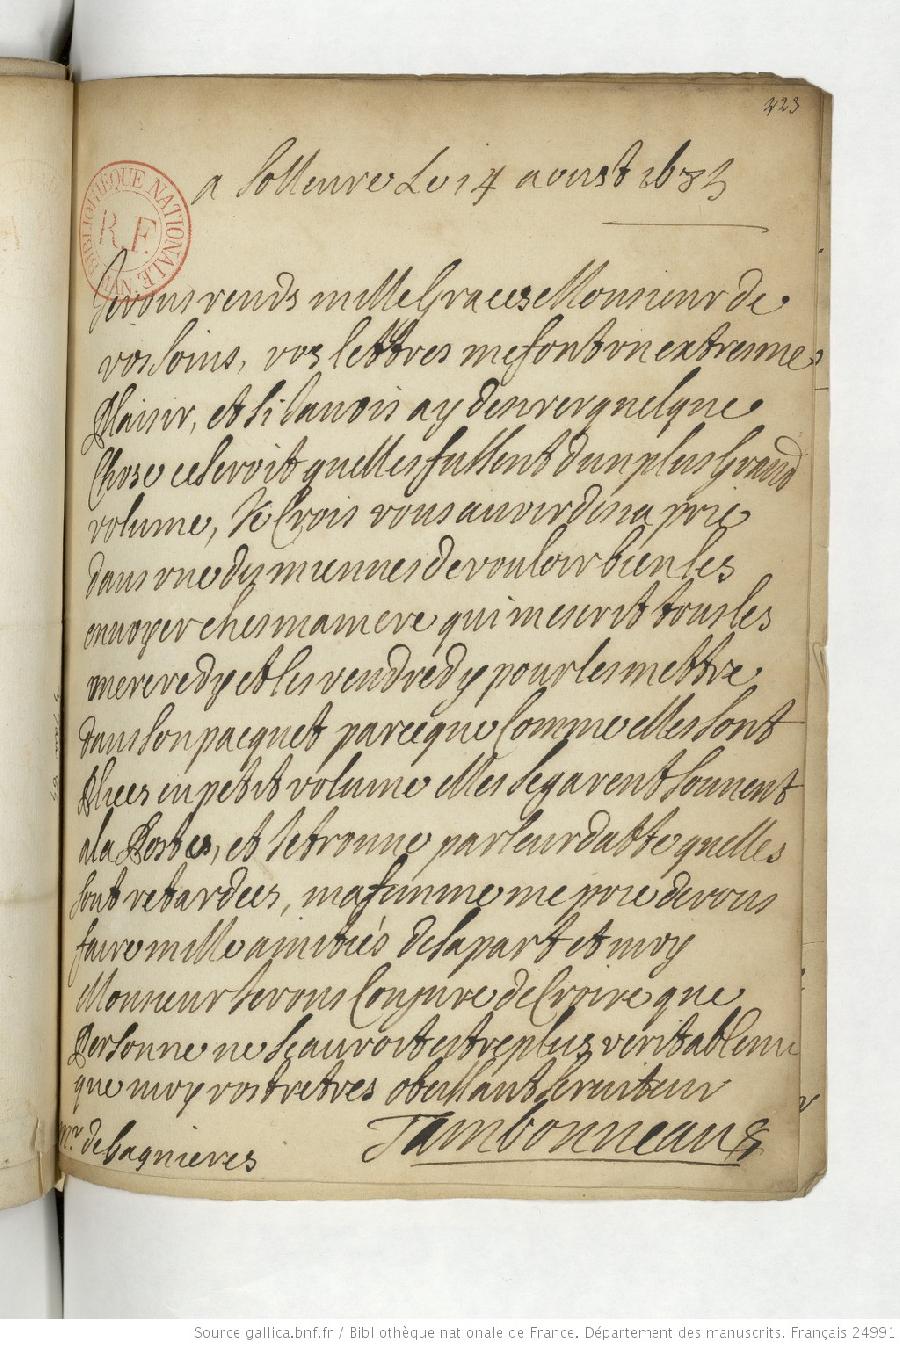 423
a Solleure Le 14 aoust 1685
BIBLIOTHÈQUE NATIONALE MSS
R.F.
Je vous rends mille Graces Monsieur de
vos soins, vos lettres me font un extresme
Plaisir, et si j'auois a y desirer quelque
Chose ce seroit quelles fussent d'un plus Grand
volume, Je Crois vous auoir desja prié
dans une des miennes de vouloir bien les
enuoyer ches ma mere qui m'escrit tous les
mercredy et les vendredy pour les mettre
dans son pacquet parceque Comme elles sont
Pliees en petit volume elles segarent souuent
a la Poste, et Je trouue par leur datte quelles
sont retardees, ma femme me prie de vous
faire mille amitiés de sa part et moy
Monsieur Je vous Conjure de Croire que
Personne ne scauroit estre plus veritableme
que moy vostre tres obeissant seruiteur
Tambonneau
Mr de bagnieres
Source gallica.bnf.fr / Bibliothèque nationale de France. Département des manuscrits. Français 24991